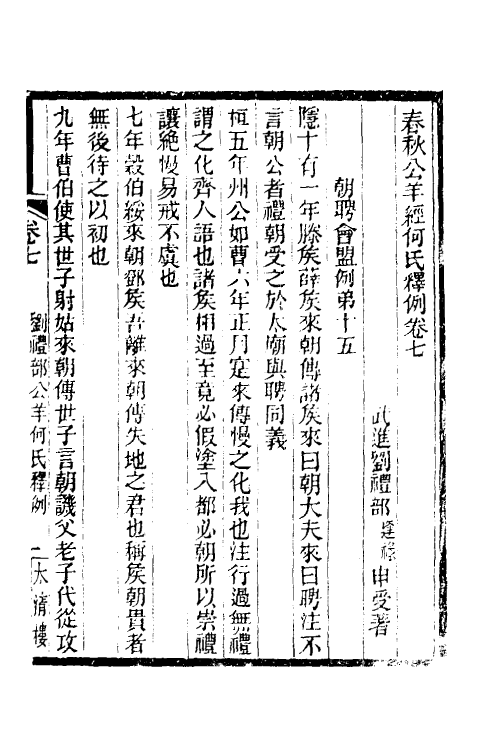 春秋公羊經何氏釋例卷七
武進劉禮部逢祿申受著
朝聘會盟例弟十五
隱十有一年滕矦薛矦來朝傳諸矦來曰朝大夫來曰聘注不
言朝公者禮朝受之於太廟與聘同義
桓五年州公如曹六年正月寔來傳慢之化我也注行過無禮
謂之化齊人語也諸矦相過至竟必假塗入都必朝所以崇禮
讓絕慢易戒不虞也
七年榖伯綏來朝鄧矦吾離來朝傳失地之君也稱矦朝貴者
無後待之以初也
九年曹伯使其世子射姑來朝傳世子言朝譏父老子代從攻
卷七
劉禮部公羊何氏釋例
二太清樓